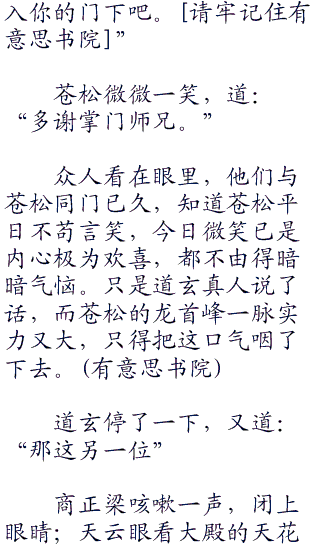 入你的门下吧。[请牢记住有
意思书院]”
苍松微微一笑，道：
“多谢掌门师兄。”
众人看在眼里，他们与
苍松同门已久，知道苍松平
日不苟言笑，今日微笑已是
内心极为欢喜，都不由得暗
暗气恼。只是道玄真人说了
话，而苍松的龙首峰一脉实
力又大，只得把这口气咽了
下去。(有意思书院)
道玄停了一下，又道：
“那这另一位”
商正梁咳嗽一声，闭上
眼睛；天云眼看大殿的天花